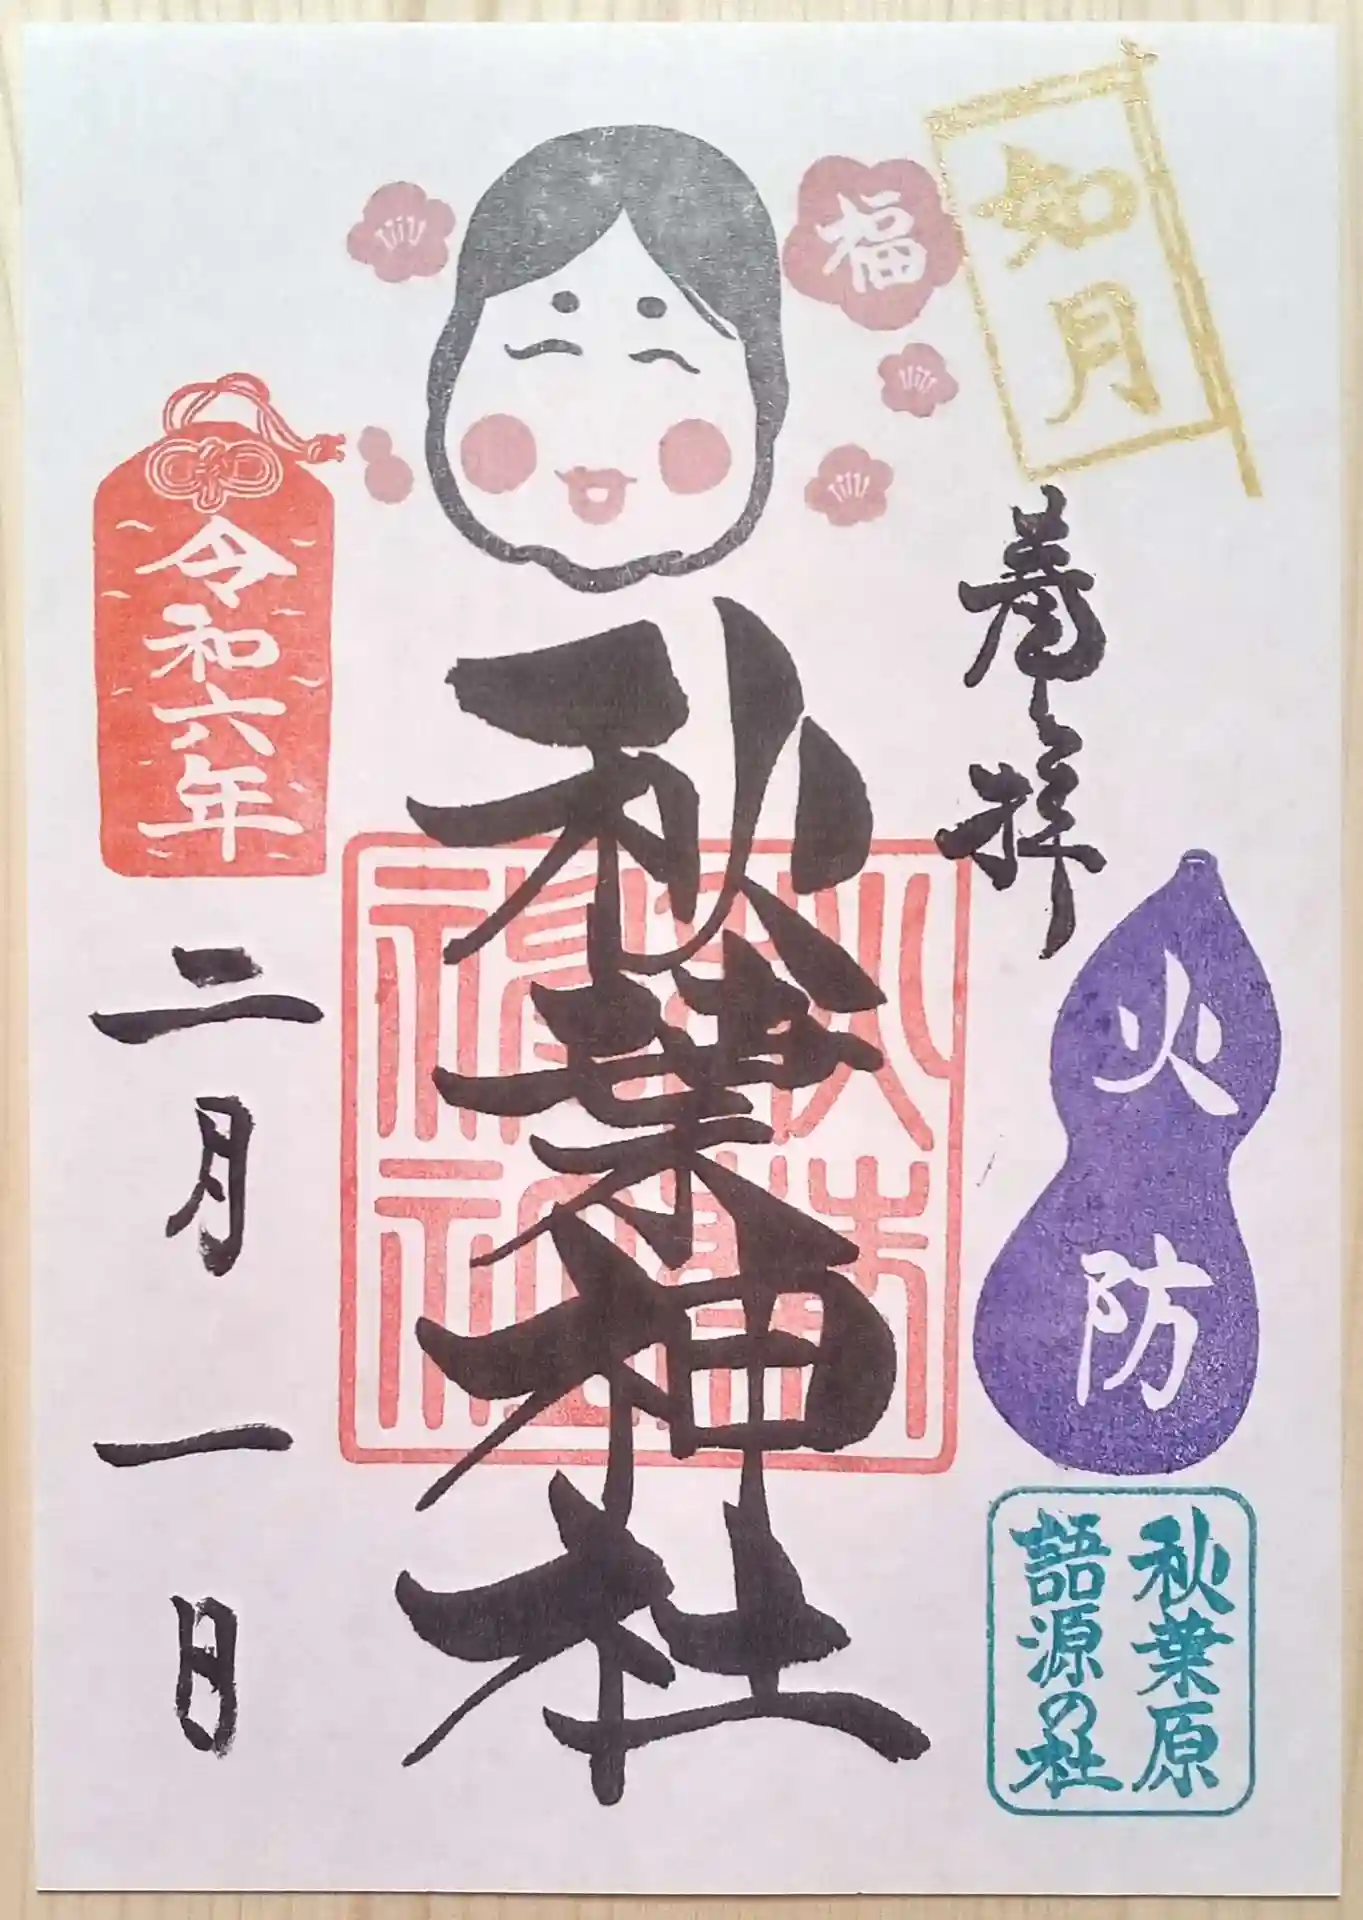 如月
福
奉拝
火防
秋葉原
語源の社
秋葉神社
秋葉
神社
令和六年
二月一日